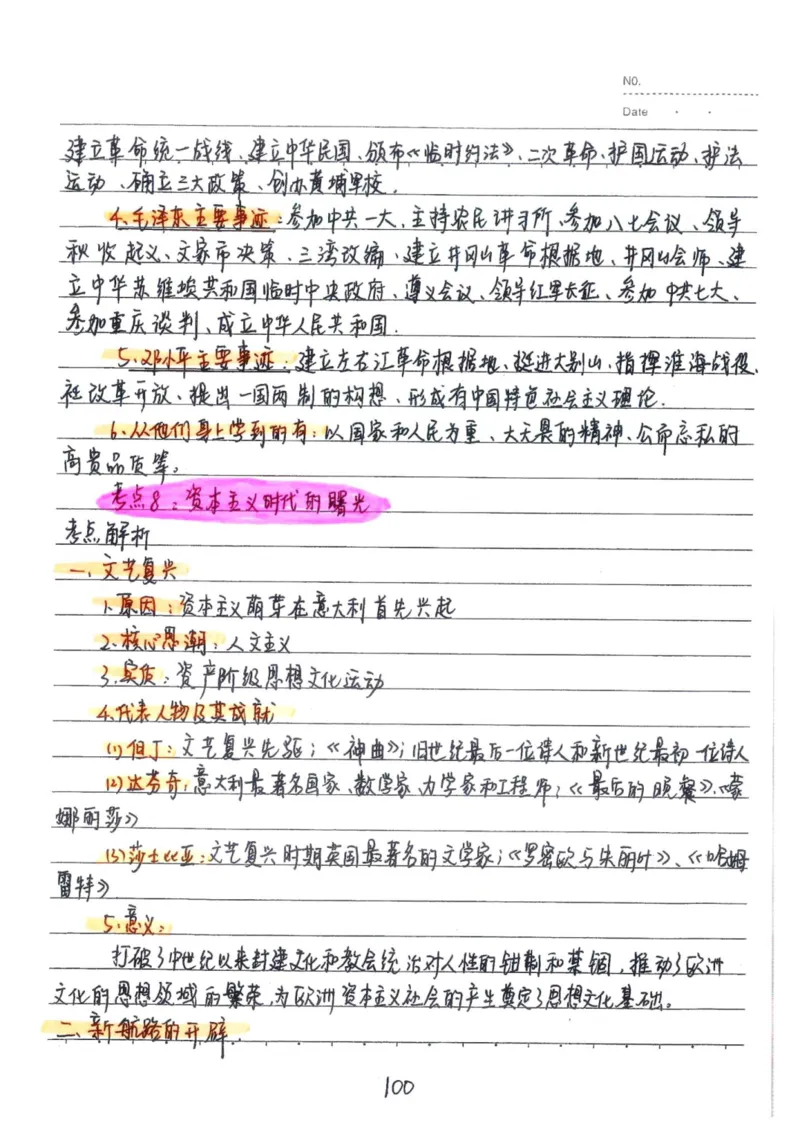 NO.
Date
建立革命统一战线、建立中华民国、颁布《临时约法》、二次革命、护国运动、护法
运动、确立三大政策、创办黄埔军校.
4.毛泽东主要事迹:参加中共一大、主持农民讲习所、参加八七会议、领导
秋收起义、文家市决策、三湾改编、建立井冈山革命根据地、井冈山会师、建
立中华苏维埃共和国临时中央政府、遵义会议、领导红军长征、参加中共七大、
参加重庆谈判、成立中华人民共和国.
5.邓小平主要事迹:建立左右江革命根据地、挺进大别山、指挥淮海战役.
社改革开放、提出一国两制的构想、形成有中国特色社会主义理论.
6.从他们身上学到的有:以国家和人民为重、大无畏的精神、公而忘私的
高贵品质等。
考点8:资本主义时代的曙光
考点解析
一、文艺复兴
1.原因:资本主义萌芽在意大利首先兴起
2.核心思潮:人文主义
3.实质:资产阶级思想文化运动
4.代表人物及其成就
(1)但丁:文艺复兴先驱;《神曲》;旧世纪最后一位诗人和新世纪最初一位诗人
(2)达芬奇:意大利最著名国家、数学家、力学家和工程师;《最后的晚餐》、《蒙
娜丽莎》
(3)莎士比亚:文艺复兴时期英国最著名的文学家;《罗密欧与朱丽叶》、《哈姆
雷特》
5.意义:
打破了中世纪以来封建文化和教会统治对人性的钳制和禁锢,推动了欧洲
文化的思想领域的繁荣,为欧洲资本主义社会的产生奠定了思想文化基础。
二、新航路的开辟.
100